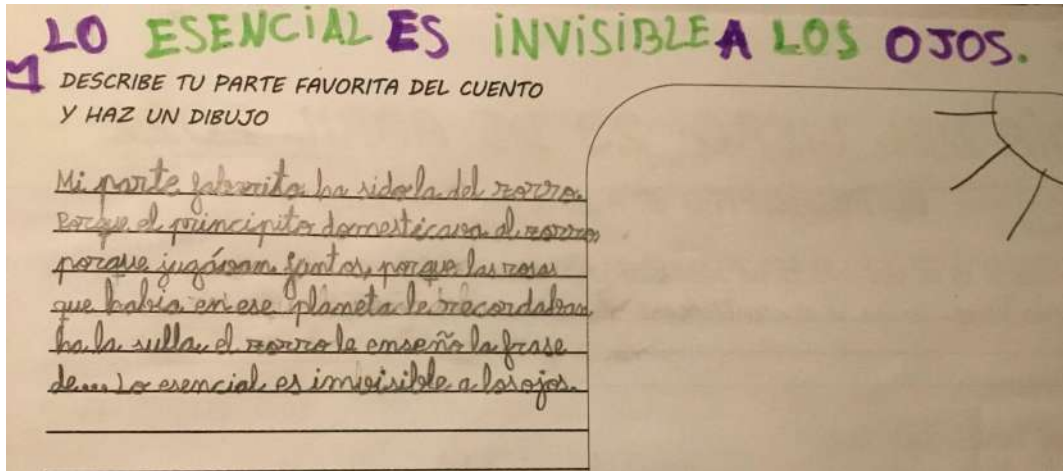 LO ESENCIAL ES INVISIBLE A LOS OJOS.
DESCRIBE TU PARTE FAVORITA DEL CUENTO
Y HAZ UN DIBUJO
Mi parte faborita ha sido la del zorro.
Porque el principito domesticava al zorro
porque jugávam juntos, porque las rosas
que había en ese planeta le recordaban
ha la sulla, el zorro le enseño la frase
de... Lo esencial es imvisible a los ojos.